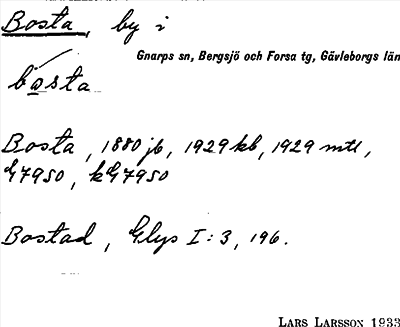 Bosta, by i
Gnarps sn, Bergsjö och Forsa tg, Gävleborgs län
bosta
Bosta, 1880 jb, 1929 kb, 1929 mtl,
G7950, kG7950
Bostad, Glys I:3, 196.
LARS LARSSON 1933